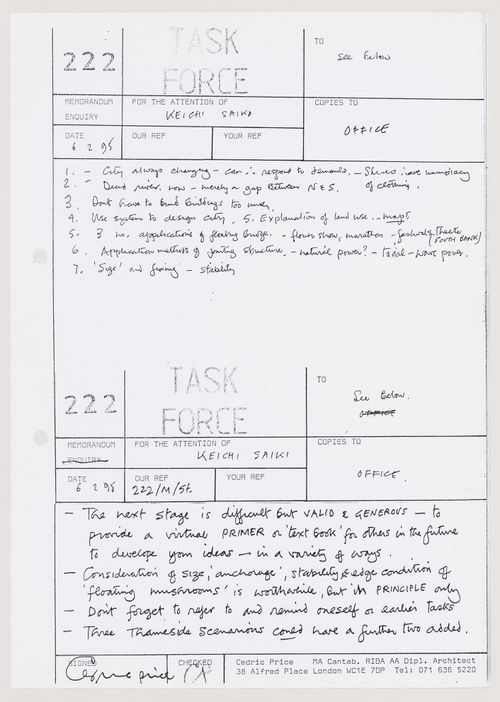 222
TASK
FORCE
TO
See Below
MEMORANDUM
ENQUIRY
FOR THE ATTENTION OF
KEICHI SAIKO
COPIES TO
OFFICE
DATE
6 2 95
OUR REF
YOUR REF
1. – City always changing – can ∴ respond to demands. – Shows immediacy
of clothing.
2. – Dead river now – merely a gap between N & S.
3. Dont have to build buildings too much
4. Use system to design city. 5. Explanation of land use .. maps
5. 3 no. applications of floating bridge. – flower show, marathon – festivals, theatre
(SOUTH BANK)
6. Application methods of jointing structure. – natural power? – tidal – wave power.
7. 'Size' and fixing – stability
222
TASK
FORCE
TO
See Below.
OFFICE
MEMORANDUM
ENQUIRY
FOR THE ATTENTION OF
KEICHI SAIKI
COPIES TO
OFFICE.
DATE
6 2 95
OUR REF
222/M/St.
YOUR REF
– The next stage is difficult but VALID & GENEROUS – to
provide a virtual PRIMER or 'text book' for others in the future
to develop your ideas – in a variety of ways.
– Consideration of size, 'anchorage', stability & edge condition of
'floating mushrooms' is worthwhile, but in PRINCIPLE only
– Don't forget to refer to and remind oneself or earlier tasks
– Three Thameside Scenarios could have a further two added.
SIGNED
Cedric Price
CHECKED
Cedric Price MA Cantab, RIBA AA Dipl. Architect
38 Alfred Place London WC1E 7DP Tel: 071 636 5220